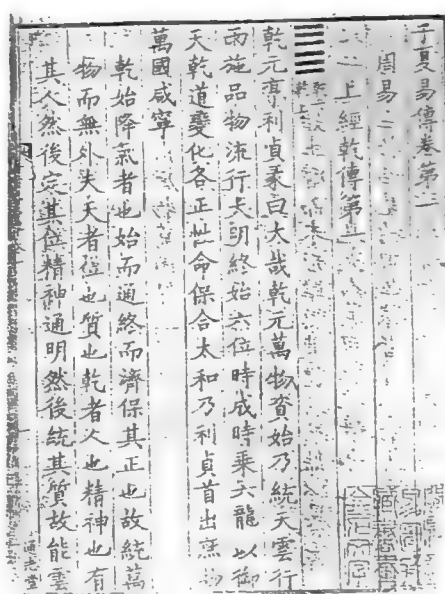 子夏易傳卷第一
周易
上經乾傳第一
乾下
乾上
乾元亨利貞彖曰大哉乾元萬物資始乃統天雲行
雨施品物流行大明終始六位時成時乘六龍以御
天乾道變化各正性命保合太和乃利貞首出庶物
萬國咸寧
乾始降氣者也始而通終而濟保其正也故統萬
物而無外夫天者位也質也乾者人也精神也有
其人然後定其位精神通明然後統其質故能雲
通志堂